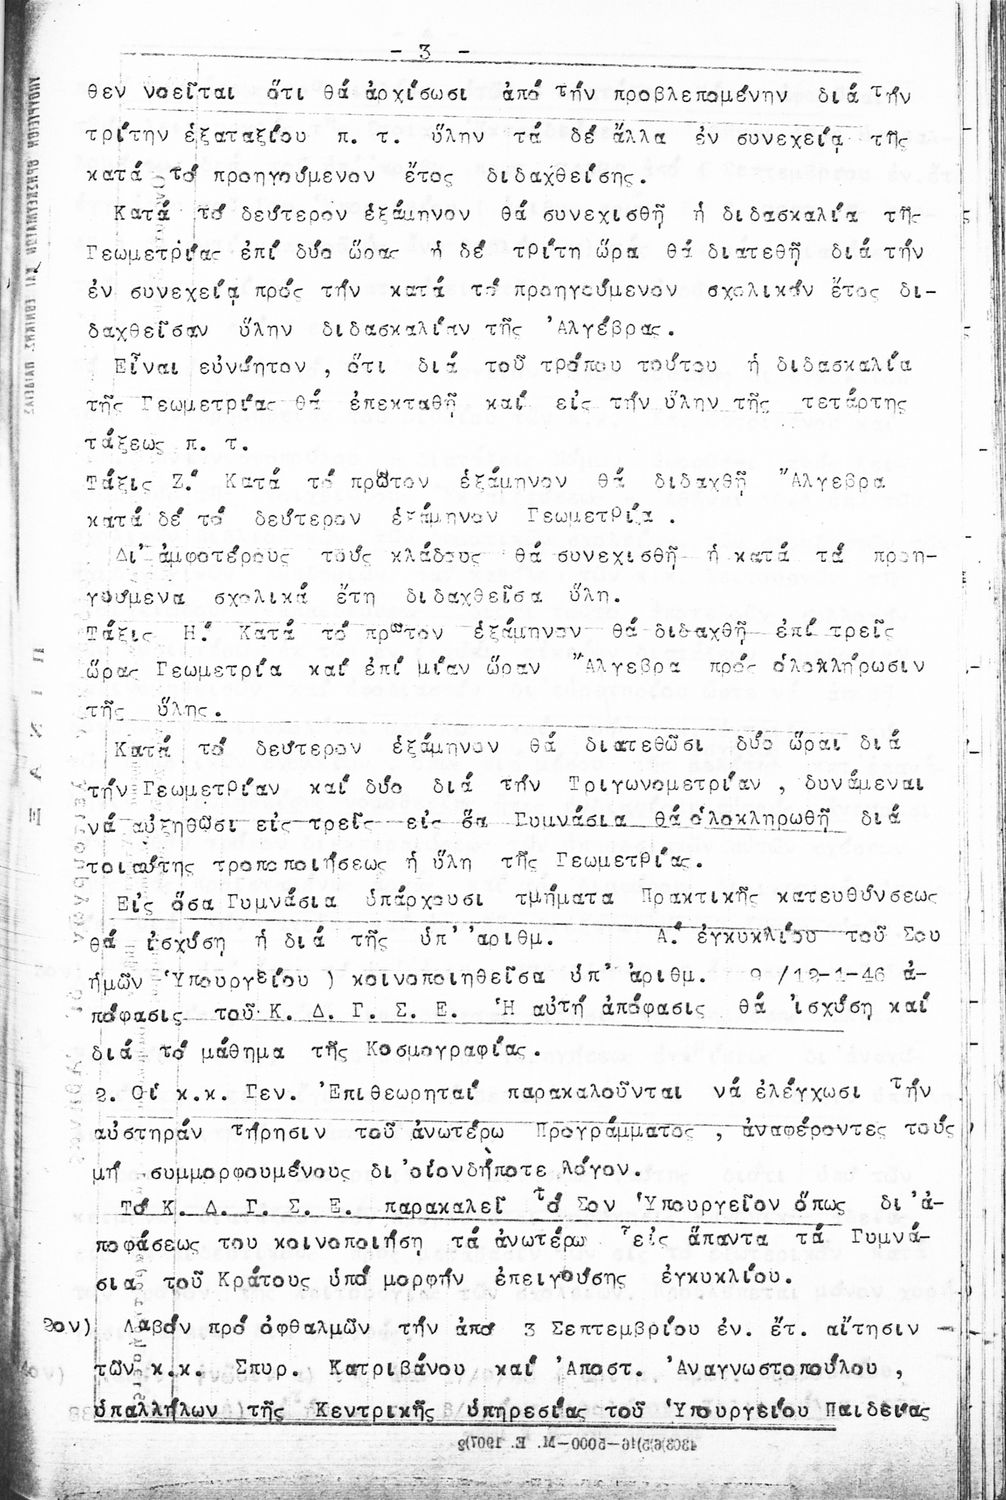 - 3 -
θεν νοεῖται ὅτι θά ἀρχίσωσι ἀπό τήν προβλεπομένην διά τήν
τρίτην ἑξαταξίου π. τ. ὕλην τά δέ ἄλλα ἐν συνεχείᾳ τῆς
κατά τό προηγούμενον ἔτος διδαχθείσης.
Κατά τό δεύτερον ἑξάμηνον θά συνεχισθῇ ἡ διδασκαλία τῆς
Γεωμετρίας ἐπί δύο ὥρας ἡ δέ τρίτη ὥρα θά διατεθῇ διά τήν
ἐν συνεχείᾳ πρός τήν κατά τό προηγούμενον σχολικόν ἔτος δι-
δαχθεῖσαν ὕλην διδασκαλίαν τῆς Ἀλγέβρας.
Εἶναι εὐνόητον, ὅτι διά τοῦ τρόπου τούτου ἡ διδασκαλία
τῆς Γεωμετρίας θά ἐπεκταθῇ καί εἰς τήν ὕλην τῆς τετάρτης
τάξεως π. τ.
Τάξις Ζ.' Κατά τό πρῶτον ἑξάμηνον θά διδαχθῇ Ἄλγεβρα
κατά δέ τό δεύτερον ἑξάμηνον Γεωμετρία.
Δι' ἀμφοτέρους τούς κλάδους θά συνεχισθῇ ἡ κατά τά προη-
γούμενα σχολικά ἔτη διδαχθεῖσα ὕλη.
Τάξις Η.' Κατά τό πρῶτον ἑξάμηνον θά διδαχθῇ ἐπί τρεῖς
ὥρας Γεωμετρία καί ἐπί μίαν ὥραν Ἄλγεβρα πρός ὁλοκλήρωσιν
τῆς ὕλης.
Κατά τό δεύτερον ἑξάμηνον θά διατεθῶσι δύο ὧραι διά
τήν Γεωμετρίαν καί δύο διά τήν Τριγωνομετρίαν, δυνάμεναι
νά αὐξηθῶσι εἰς τρεῖς εἰς ὅσα Γυμνάσια θά ὁλοκληρωθῇ διά
τοιαύτης τροποποιήσεως ἡ ὕλη τῆς Γεωμετρίας.
Εἰς ὅσα Γυμνάσια ὑπάρχουσι τμήματα Πρακτικῆς κατευθύνσεως
θά ἰσχύσῃ ἡ διά τῆς ὑπ' ἀριθμ. Α.' ἐγκυκλίου τοῦ Σου
ἡμῶν Ὑπουργείου) κοινοποιηθεῖσα ὑπ' ἀριθμ. 9/12-1-46 ἀ-
πόφασις τοῦ Κ. Δ. Γ. Σ. Ε. Ἡ αὐτή ἀπόφασις θά ἰσχύσῃ καί
διά τό μάθημα τῆς Κοσμογραφίας.
2. Οἱ κ.κ. Γεν. Ἐπιθεωρηταί παρακαλοῦνται νά ἐλέγχωσι τήν
αὐστηράν τήρησιν τοῦ ἀνωτέρω Προγράμματος, ἀναφέροντες τούς
μή συμμορφουμένους δι' οἱονδήποτε λόγον.
Τό Κ. Δ. Γ. Σ. Ε. παρακαλεῖ τό Σον Ὑπουργεῖον ὅπως δι' ἀ-
ποφάσεως του κοινοποιήσῃ τά ἀνωτέρω εἰς ἅπαντα τά Γυμνά-
σια τοῦ Κράτους ὑπό μορφήν ἐπειγούσης ἐγκυκλίου.
2ον) Λαβόν πρό ὀφθαλμῶν τήν ἀπό 3 Σεπτεμβρίου ἐν. ἔτ. αἴτησιν
τῶν κ.κ. Σπυρ. Κατριβάνου καί Ἀποστ. Ἀναγνωστοπούλου,
ὑπαλλήλων τῆς Κεντρικῆς ὑπηρεσίας τοῦ Ὑπουργείου Παιδείας